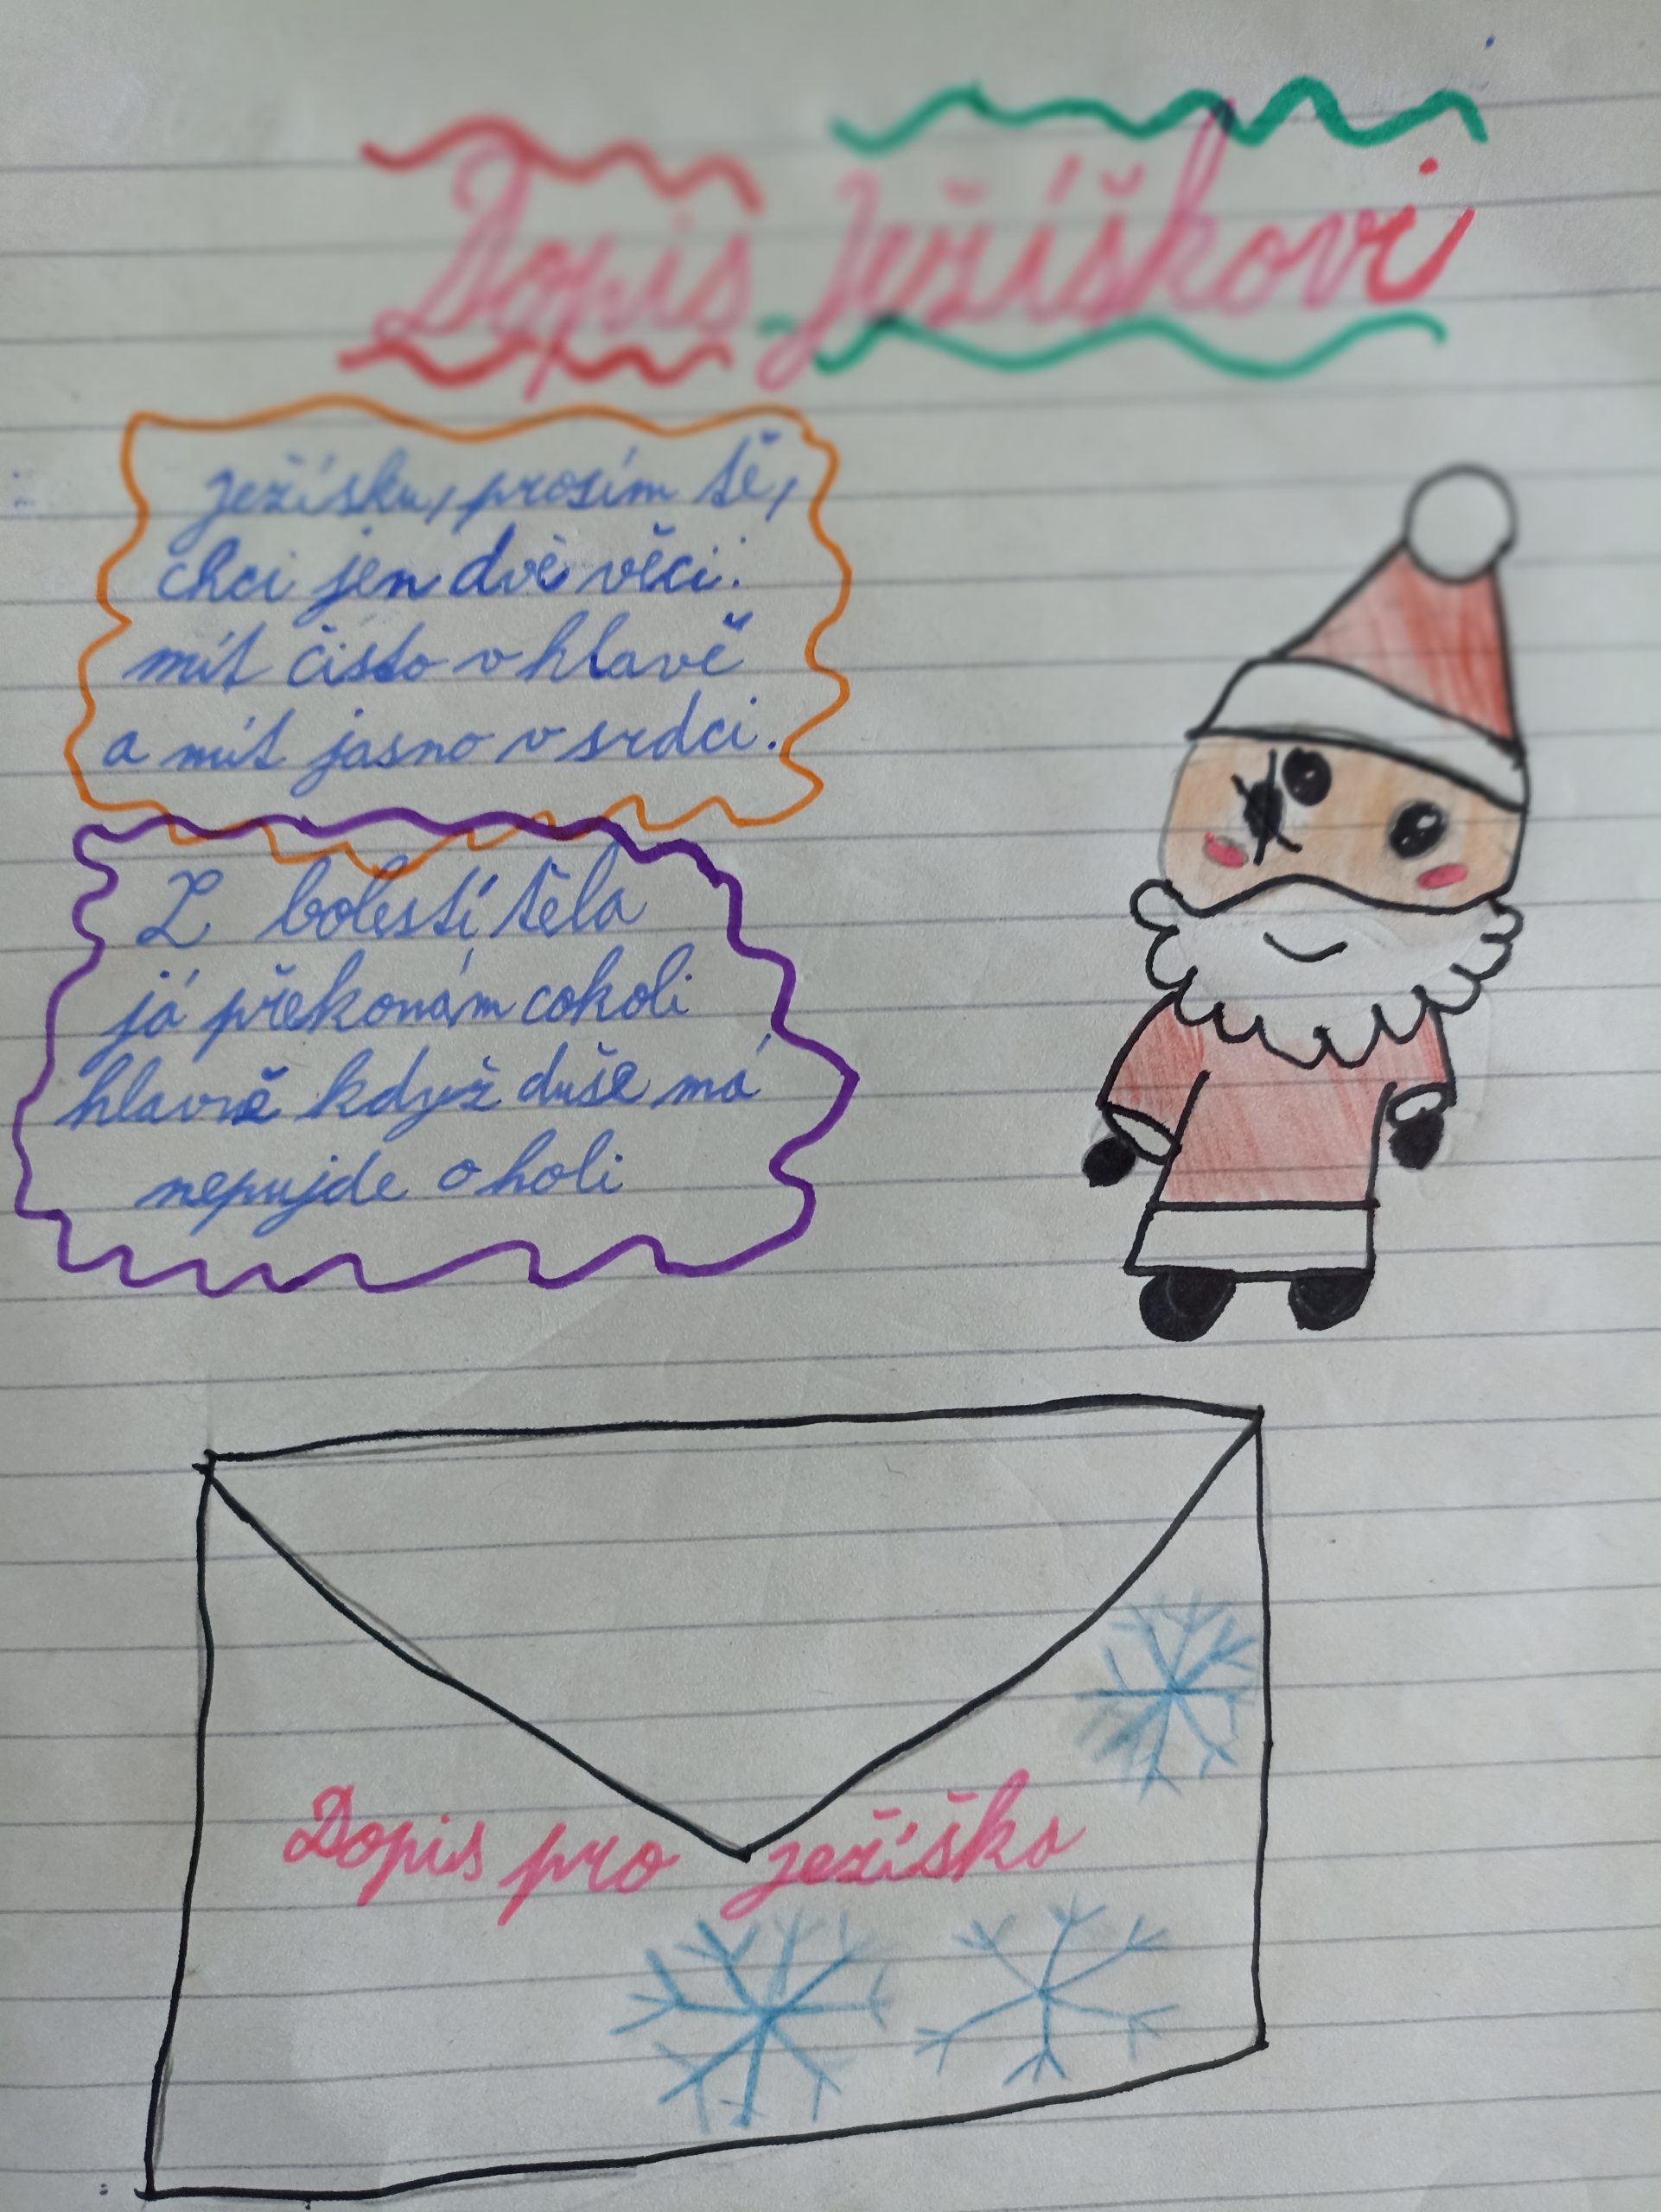 Dopis Ježíškovi
ježísku, prosím tě,
chci jen dvě věci:
mít čisto v hlavě
a mít jasno v srdci.
Z bolestí těla
já překonám cokoli
hlavně když duše má
nepujde o holi
Dopis pro ježíška